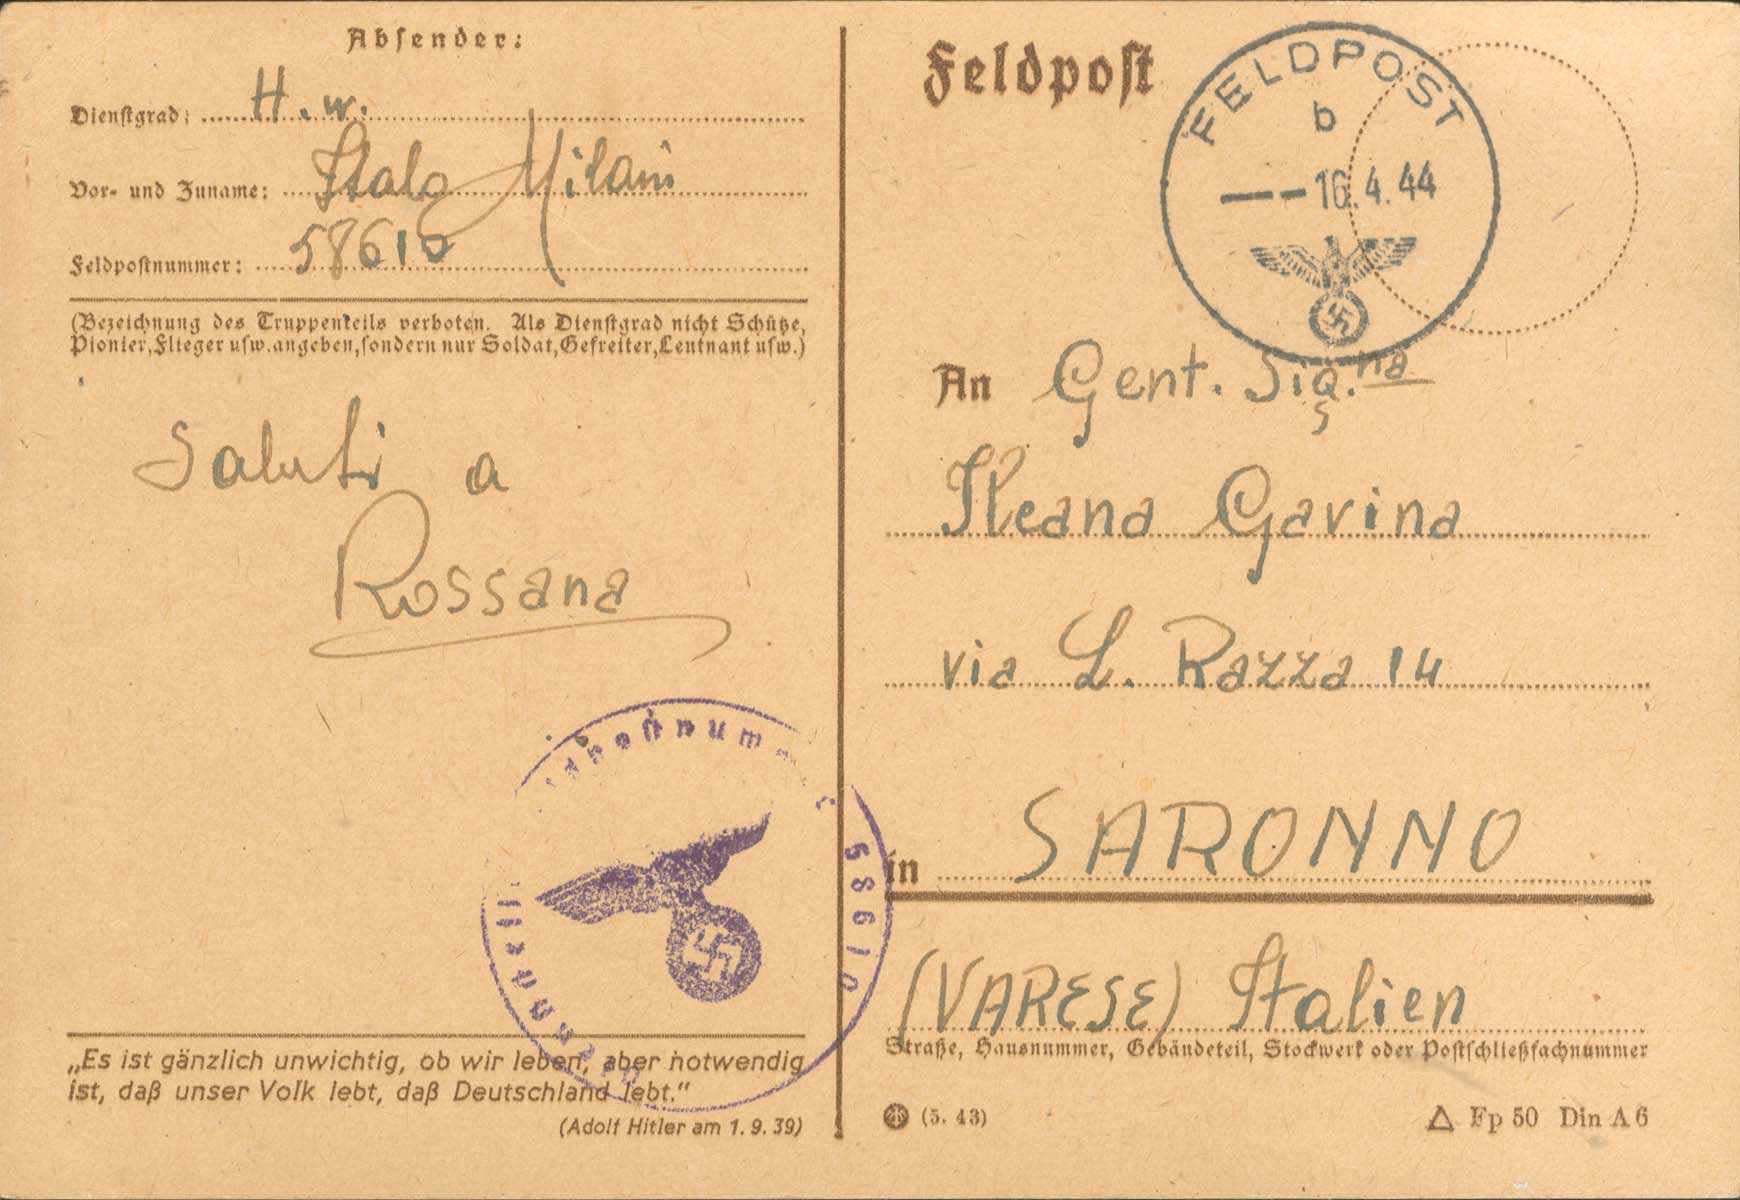 Absender:
Dienstgrad: H.w.
Vor- und Zuname: Italo Milani
Feldpostnummer: 58610
(Bezeichnung des Truppenteils verboten. Als Dienstgrad nicht Schütze,
Pionier, Flieger usw. angeben, sondern nur Soldat, Gefreiter, Leutnant usw.)
Saluti a
Rossana
58610
„Es ist gänzlich unwichtig, ob wir leben, aber notwendig
ist, daß unser Volk lebt, daß Deutschland lebt.“
(Adolf Hitler am 1. 9. 39)
Feldpost
FELDPOST
b
16.4.44
An Gent. Sig.na
Ileana Gavina
via L. Razza 14
in SARONNO
(VARESE) Italien
Straße, Hausnummer, Gebäudeteil, Stockwerk oder Postschließfachnummer
(5. 43)
Fp 50 Din A 6